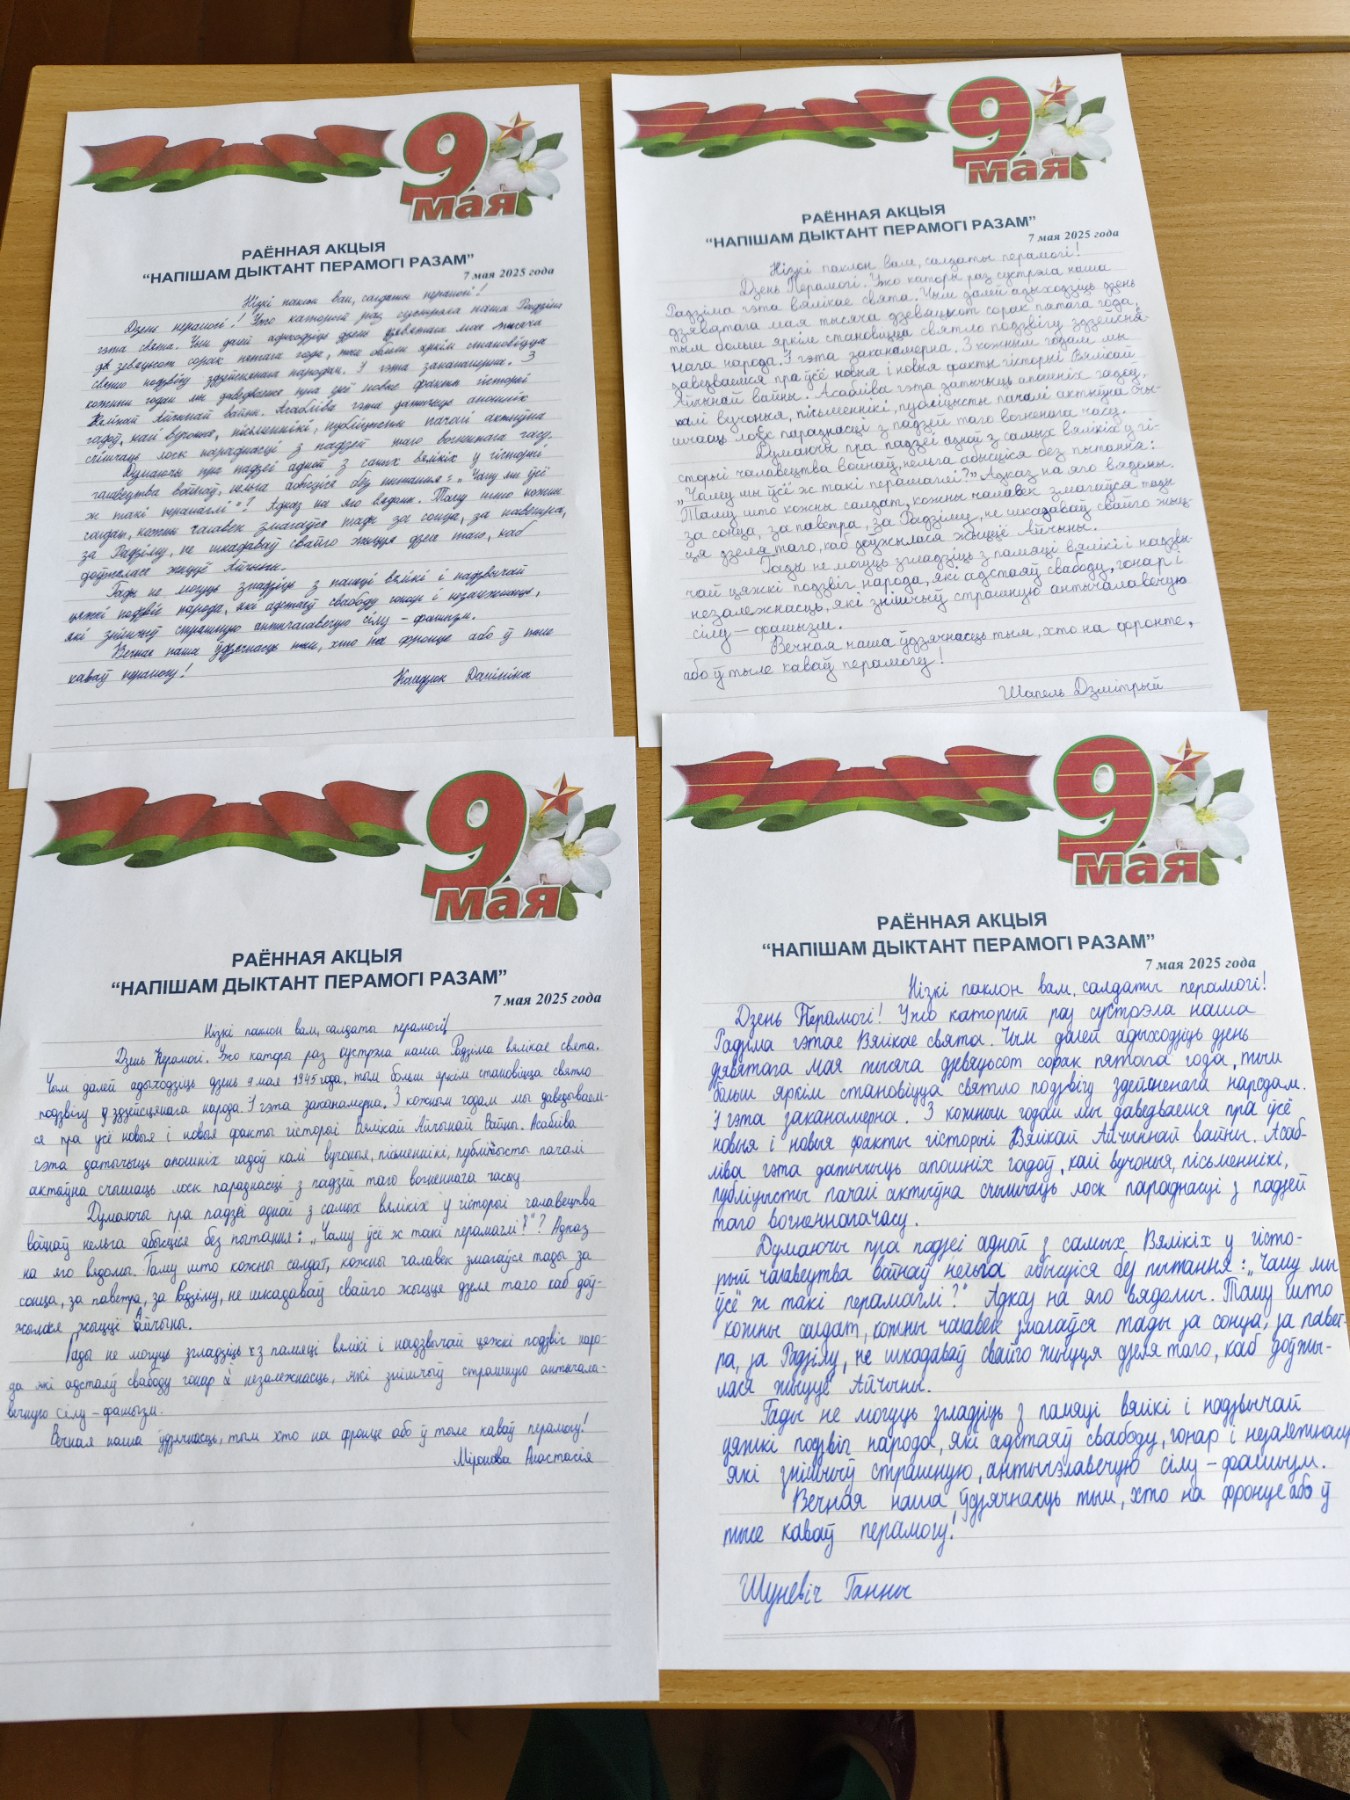 9
мая
РАЁННАЯ АКЦЫЯ
“НАПІШАМ ДЫКТАНТ ПЕРАМОГІ РАЗАМ”
7 мая 2025 года
Нізкі паклон вам, салдаты перамогі!
Дзень перамогі! Ужо каторый раз сустрэла наша Радзіма
гэта свята. Чым далей адыходзіць дзень дзявятага мая тысяча
дзевяцьсот сорак пятага года, тым больш яркім становіцца
святло подзвігу здзейсненага народам. І гэта заканамерна. З
кожным годам мы даведваемся пра ўсё новыя факты гісторыі
Вялікай Айчыннай вайны. Асабліва гэта датычыць апошніх
гадоў, калі вучоныя, пісьменнікі, публіцысты пачалі актыўна
счышчаць лоск параднасці з падзей таго вогненнага часу.
Думаючы пра падзеі адной з самых вялікіх у гісторыі
чалавецтва войнаў, нельга абысціся без пытання: „Чаму мы ўсё
ж такі перамаглі"? Адказ на яго вядомы. Таму што кожны
салдат, кожны чалавек змагаўся тады за сонца, за паветра,
за Радзіму, не шкадаваў свайго жыцця дзеля таго, каб
доўжылася жыццё Айчыны.
Гады не могуць згладзіць з памяці вялікі і надзвычай
цяжкі подзвіг народа, які адстаяў свабоду гонар і незалежнасць,
які знішчыў страшную антычалавечую сілу – фашызм.
Вечная наша ўдзячнасць тым, хто на фронце або ў тыле
каваў перамогу!
Даніліна
9
мая
РАЁННАЯ АКЦЫЯ
“НАПІШАМ ДЫКТАНТ ПЕРАМОГІ РАЗАМ”
7 мая 2025 года
Нізкі паклон вам, салдаты перамогі!
Дзень Перамогі. Ужо каторы раз сустрэла наша
Радзіма гэта вялікае свята. Чым далей адыходзіць дзень
дзявятага мая тысяча дзевяцьсот сорак пятага года,
тым больш яркім становіцца святло подзвігу здзейсне-
нага народа. І гэта заканамерна. З кожным годам мы
даведваемся пра ўсё новыя і новыя факты гісторыі Вялікай
Айчыннай вайны. Асабліва гэта датычыць апошніх гадоў,
калі вучоныя, пісьменнікі, публіцысты пачалі актыўна счы-
шчаць лоск параднасці з падзей таго вогненага часу.
Думаючы пра падзеі адной з самых вялікіх у гі-
сторыі чалавецтва войнаў, нельга абысціся без пытання:
„Чаму мы ўсё ж такі перамаглі?" Адказ на яго вядомы.
Таму што кожны салдат, кожны чалавек змагаўся тады
за сонца, за паветра, за Радзіму, не шкадаваў свайго жыц-
ця дзеля таго, каб доўжылася жыццё Айчыны.
Гады не могуць згладзіць з памяці вялікі і надзвы-
чай цяжкі подзвіг народа, які адстаяў свабоду, гонар і
незалежнасць, які знішчыў страшную антычалавечую
сілу – фашызм.
Вечная наша ўдзячнасць тым, хто на фронте,
або ў тыле каваў перамогу!
Шапель Дзмітрый
9
мая
РАЁННАЯ АКЦЫЯ
“НАПІШАМ ДЫКТАНТ ПЕРАМОГІ РАЗАМ”
7 мая 2025 года
Нізкі паклон вам, салдаты перамогі!
Дзень Перамогі. Ужо каторы раз сустрэла наша Радзіма вялікае свята.
Чым далей адыходзіць дзень 9 мая 1945 года, тым больш яркім становіцца святло
подзвігу здзейсцянага народа І гэта заканамерна. З кожным годам мы даведываем-
ся пра ўсё новыя і новыя факты гісторыі Вялікай Айчынай Вайны. Асабліва
гэта датычыць апошніх гадоў калі вучоныя, пісьменнікі, публіцысты пачалі
актыўна счышаць лоск параднасці з падзей таго вогненнага часу
Думаючы пра падзеі адной з самых вялікіх у гісторыі чалавецтва
войнаў нельга абысціся без пытання: „Чаму ўсё ж такі перамаглі?"? Адказ
на яго вядомы. Таму што кожны салдат, кожны чалавек змагаўся тады за
сонца, за паветра, за Радзіму, не шкадаваў свайго жыцце дзеля таго каб доў-
жылася жыццё Айчыны.
Гады не могуць згладзіць з памяці вялікі і надзвычай цяжкі подзвіг наро-
да які адстаяў свабоду гонар і незалежнасць, які знішчыў страшную антычала-
вечную сілу – фашызм.
Вечная наша ўдзячнасць, тым хто на фронце або ў тыле каваў перамогу!
Міронова Анастасія
9
мая
РАЁННАЯ АКЦЫЯ
“НАПІШАМ ДЫКТАНТ ПЕРАМОГІ РАЗАМ”
7 мая 2025 года
Нізкі паклон вам, салдаты перамогі!
Дзень Перамогі! Ужо каторый раз сустрэла наша
Радзіма гэтае Вялікае свята. Чым далей адыходзіць дзень
дзявятага мая тысяча дзевяцьсот сорак пятага года, тым
больш яркім становіцца святло подзвігу здейсненага народам.
І гэта заканамерна. З кожным годам мы даведваемся пра ўсё
новыя і новыя факты гісторыі Вялікай Айчыннай вайны. Асаб-
ліва гэта датычыць апошніх гадоў, калі вучоныя, пісьменнікі,
публіцысты пачалі актыўна счышчаць лоск параднасці з падзей
таго вогненнага часу.
Думаючы пра падзеі адной з самых Вялікіх у гісто-
рый чалавецтва войнаў нельга абысціся без пытання: „Чаму мы
ўсё ж такі перамаглі?" Адказ на яго вядомы. Таму што
кожны салдат, кожны чалавек змагаўся тады за сонца, за павет-
ра, за Радзіму, не шкадаваў свайго жыцця дзеля таго, каб доўжы-
лася жыццё Айчыны.
Гады не могуць згладзіць з памяці вялікі і надзвычай
цяжкі подзвіг народа, які адстаяў свабоду, гонар і незалежнасць
які знішчыў страшную, антычалавечую сілу – фашызм.
Вечная наша ўдзячнасць тым, хто на фронце або ў
тыле каваў перамогу!
Шуневіч Ганны